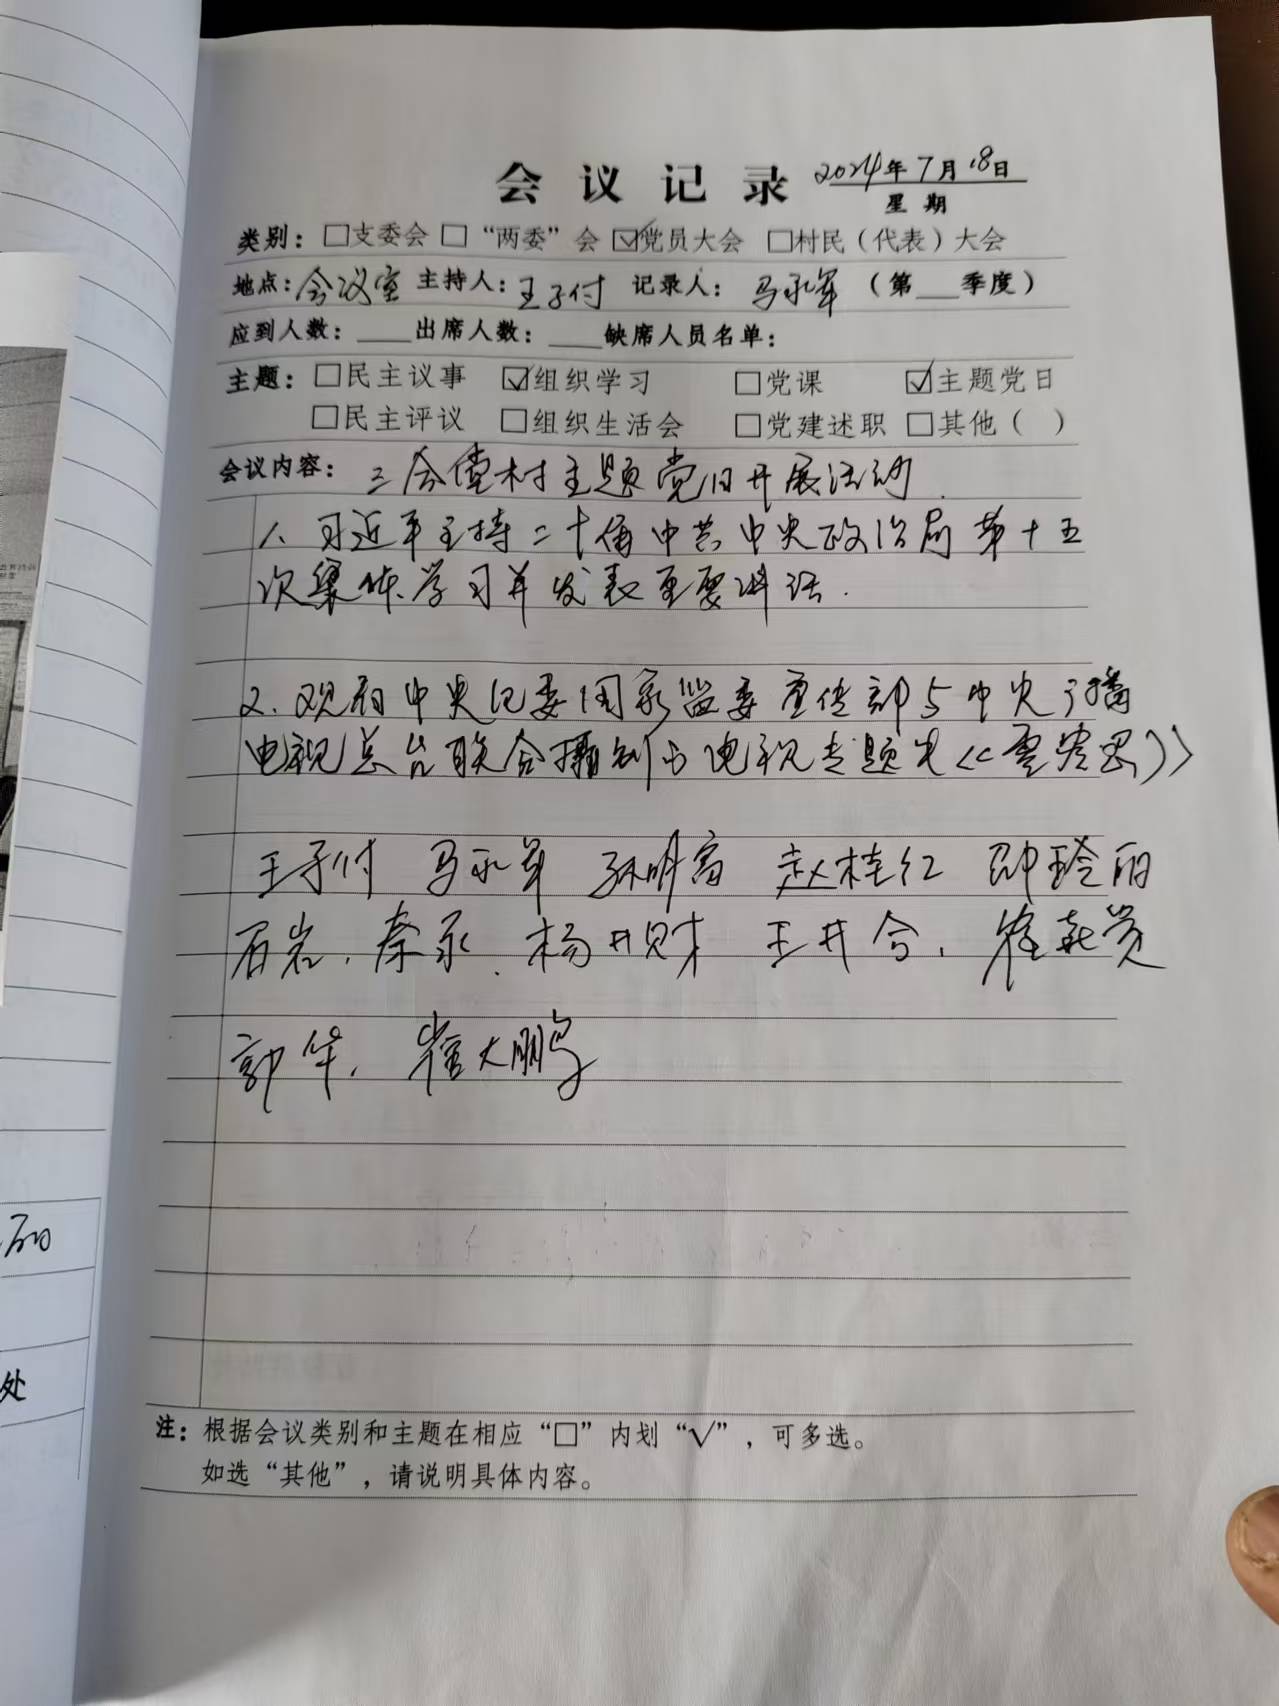 会议记录 2024年7月18日
星期
类别：□支委会 □“两委”会 ☑党员大会 □村民（代表）大会
地点：会议室 主持人：王子付 记录人：马永军 （第___季度）
应到人数：____出席人数：____缺席人员名单：
主题：□民主议事 ☑组织学习 □党课 ☑主题党日
□民主评议 □组织生活会 □党建述职 □其他（ ）
会议内容：三合堡村主题党日开展活动.
1、习近平主持二十届中共中央政治局第十五
次集体学习并发表重要讲话.
2、观看中央纪委国家监委宣传部与中央广播
电视总台联合摄制的电视专题片《零容忍》
王子付 马永军 孙明富 赵桂红 玲丽
石岩. 秦永. 杨井财 王井合.
郭华. 崔大鹏
注：根据会议类别和主题在相应“□”内划“√”，可多选。
如选“其他”，请说明具体内容。
处